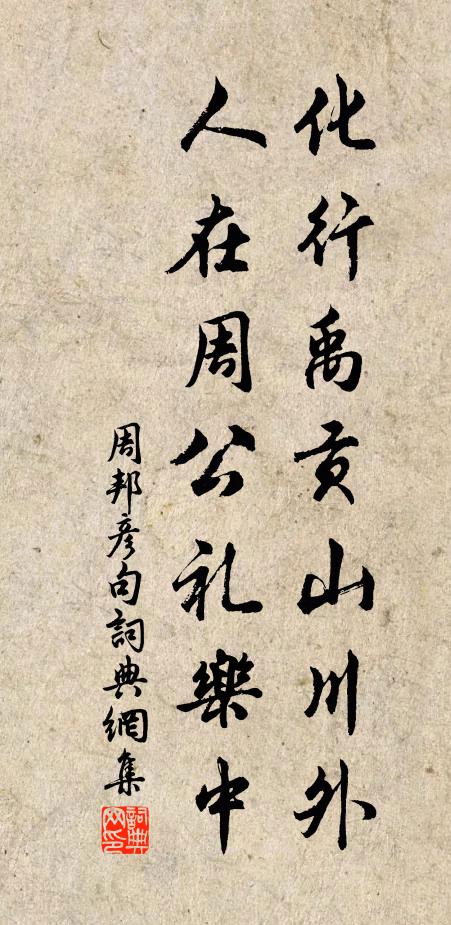 化行禹贡山川外
人在周公礼樂中
周邦彦句詞典網集
詞典
网印